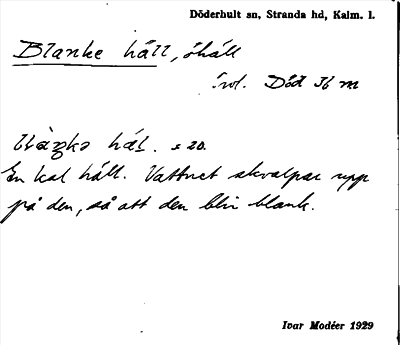 Döderhult sn, Stranda hd, Kalm. l.
Blanke häll, öhäll
ird. Död 36 m
häl. s 20.
En kal häll. Vattnet skvalpar upp
på den, så att den blir blank.
Ivar Modéer 1929